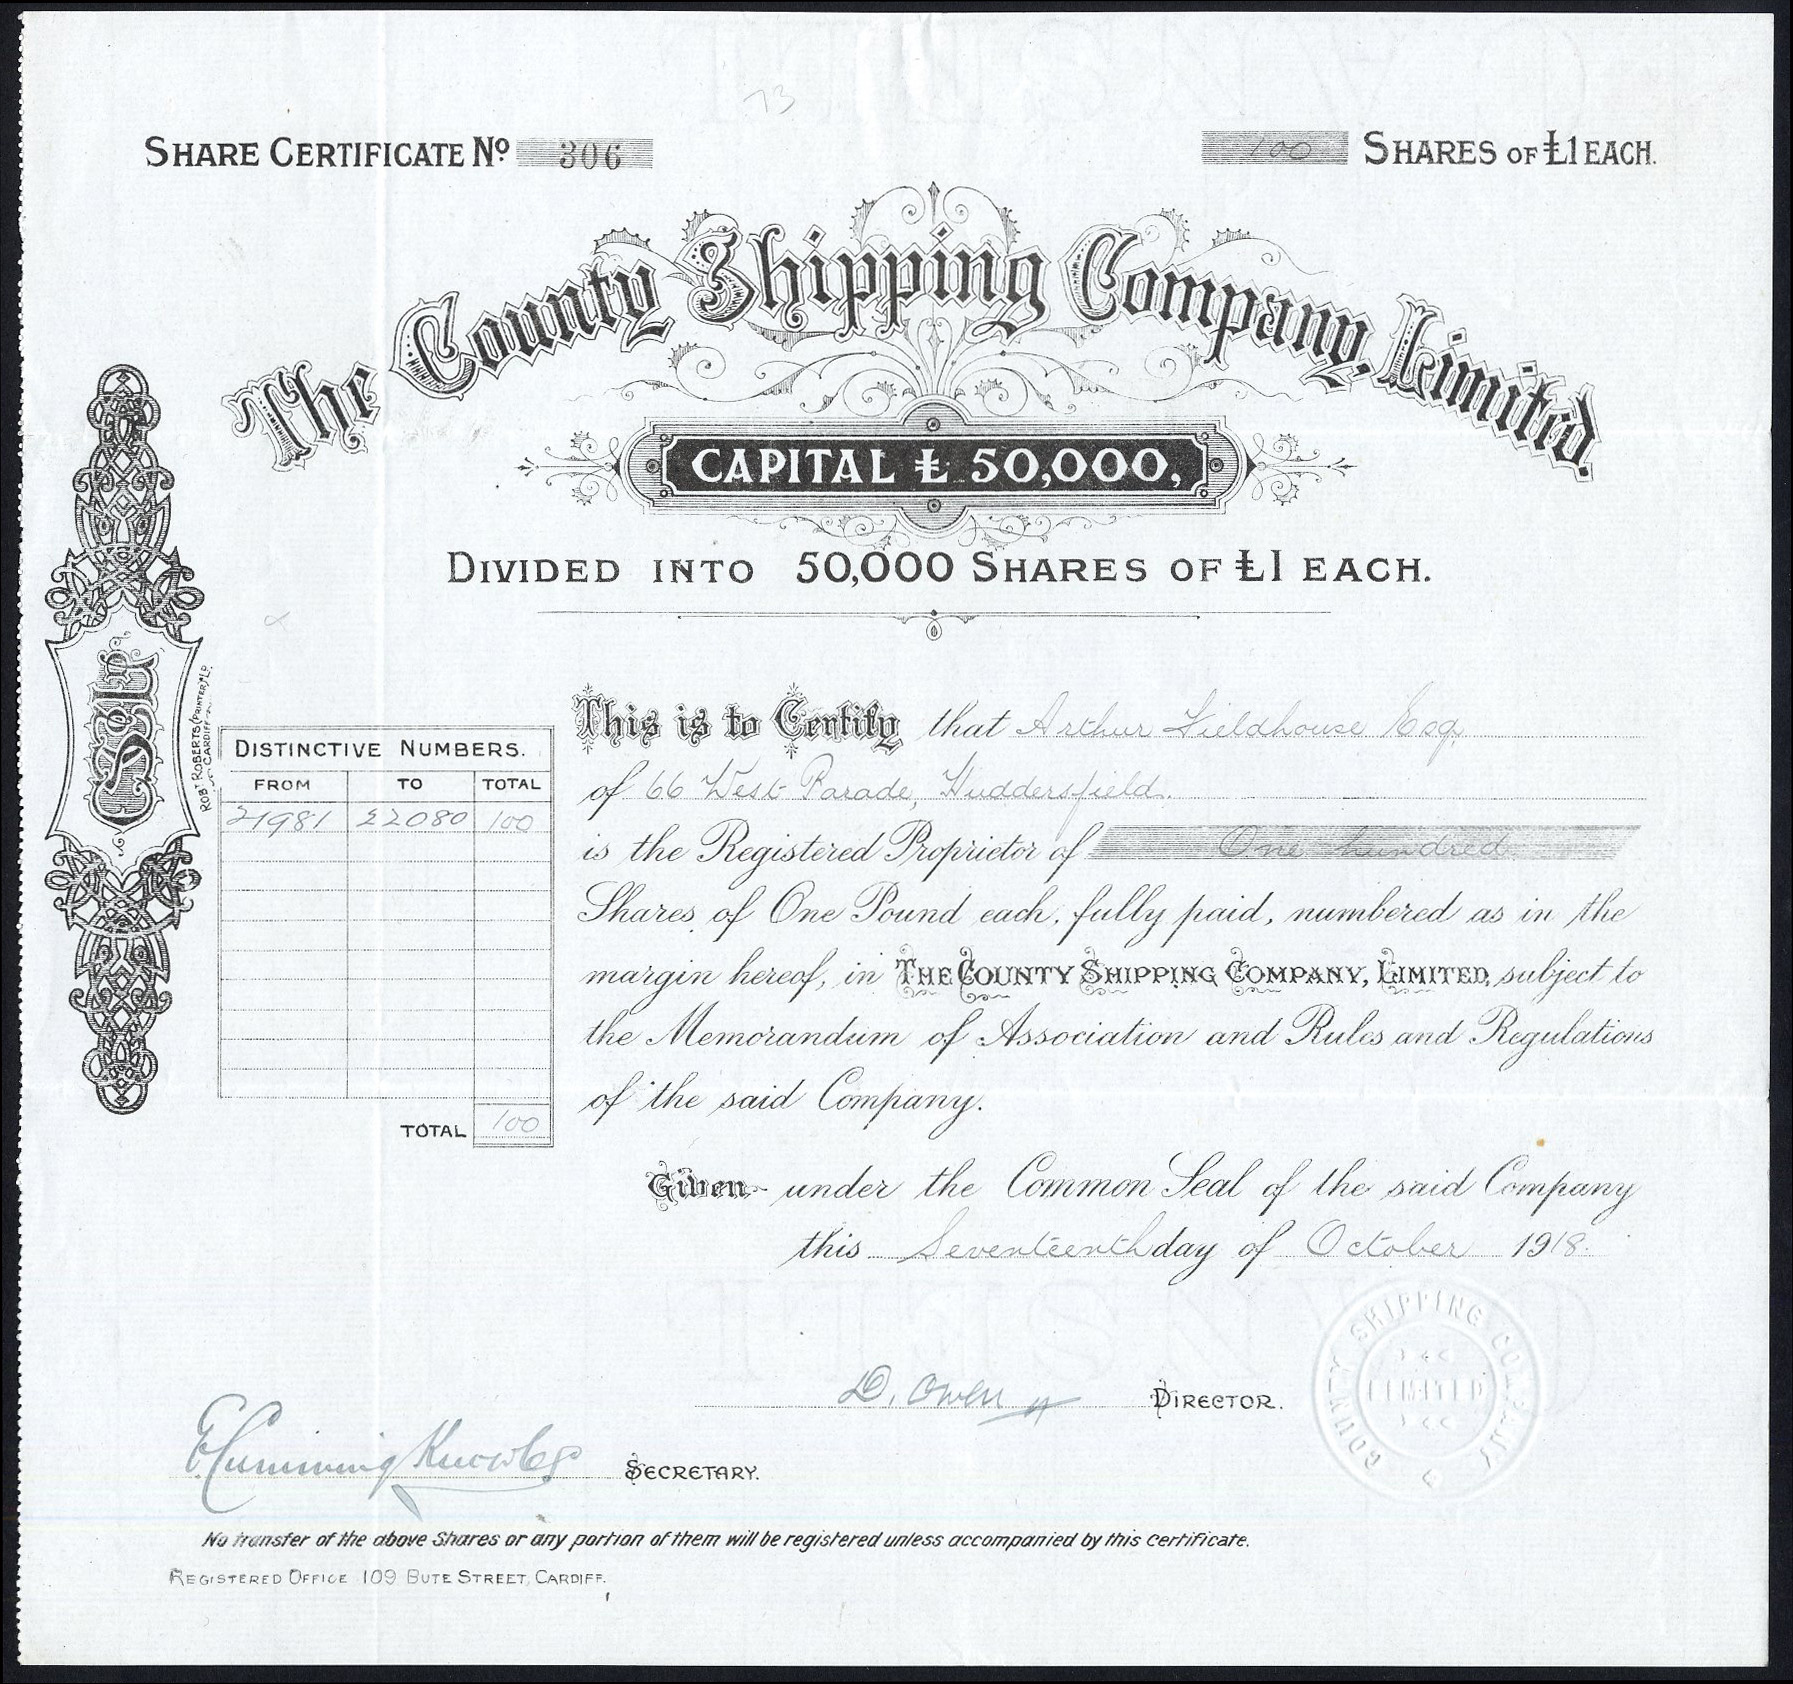 73
SHARE CERTIFICATE No 306
100 SHARES OF £1 EACH.
The County Shipping Company, Limited.
CAPITAL £ 50,000,
DIVIDED INTO 50,000 SHARES OF £1 EACH.
ROBT ROBERTS (PRINTER) LD
CARDIFF
DISTINCTIVE NUMBERS.
FROM TO TOTAL
21981 22080 100
TOTAL 100
This is to Certify that Arthur Fieldhouse Esq.
of 66 West Parade, Huddersfield.
is the Registered Proprietor of One hundred
Shares of One Pound each, fully paid, numbered as in the
margin hereof, in THE COUNTY SHIPPING COMPANY, LIMITED, subject to
the Memorandum of Association and Rules and Regulations
of the said Company.
Given under the Common Seal of the said Company
this Seventeenth day of October 1918.
COUNTY SHIPPING COMPANY
LIMITED
D. Owen DIRECTOR.
E Cumming Knowles SECRETARY.
No transfer of the above Shares or any portion of them will be registered unless accompanied by this certificate.
REGISTERED OFFICE 109 BUTE STREET, CARDIFF.